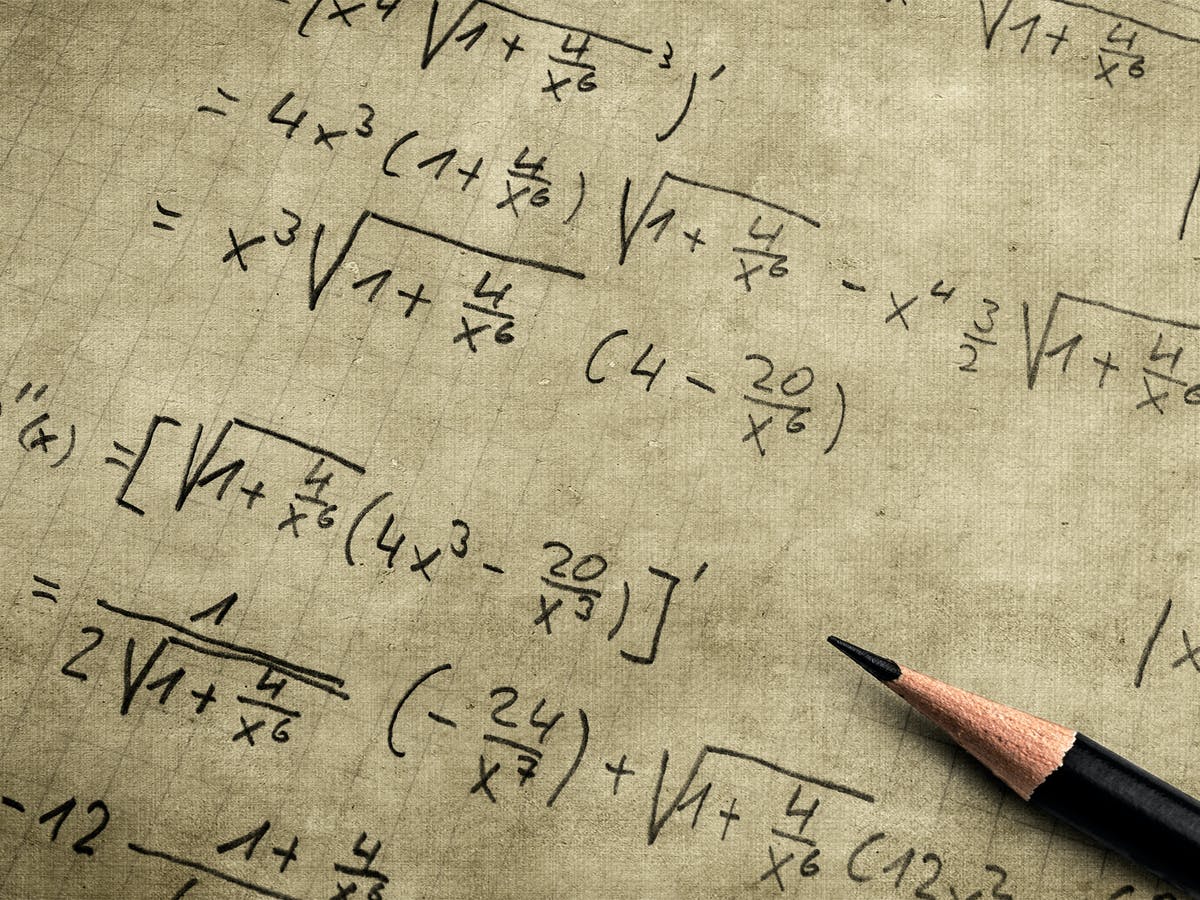 (x⁴ √(1 + 4/x⁶)³)′ √(1 + 4/x⁶)
= 4x³ (1 + 4/x⁶) √(1 + 4/x⁶) - x⁴ 3/2 √(1 + 4/x⁶)
= x³ √(1 + 4/x⁶) (4 - 20/x⁶)
″(x) = [√(1 + 4/x⁶) (4x³ - 20/x³)]′
= 1/(2√(1 + 4/x⁶)) (- 24/x⁷) + √(1 + 4/x⁶) (12x²
-12 1 + 4/x⁶